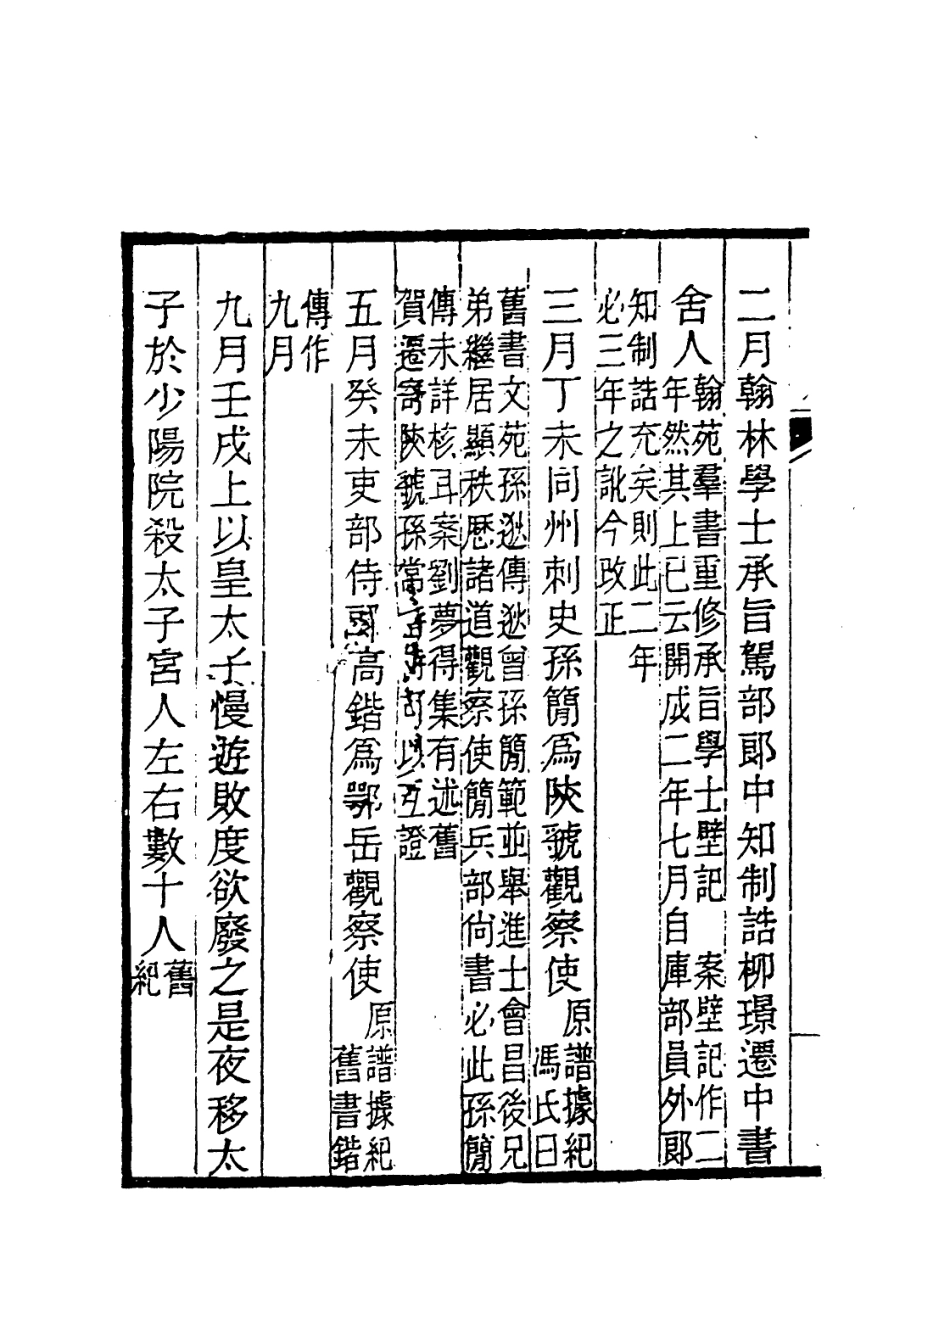 二月翰林學士承旨駕部郎中知制誥柳璟遷中書
舍人翰苑羣書重修承旨學士壁記　案壁記作二
年然其上已云開成二年七月自庫部員外郎
知制誥充矣則此二年
必三年之訛今改正
三月丁未同州刺史孫簡爲陝虢觀察使原譜據紀
馮氏曰
舊書文苑孫逖傳逖曾孫簡範並舉進士會昌後兄
弟繼居顯秩歷諸道觀察使簡兵部尚書必此孫簡
傳未詳核耳案劉夢得集有述舊
賀遷寄陝虢孫常侍詩可以互證
五月癸未吏部侍郎高鍇爲鄂岳觀察使原譜據紀
舊書鍇
傳作
九月
九月壬戌上以皇太子慢遊敗度欲廢之是夜移太
子於少陽院殺太子宮人左右數十人舊
紀